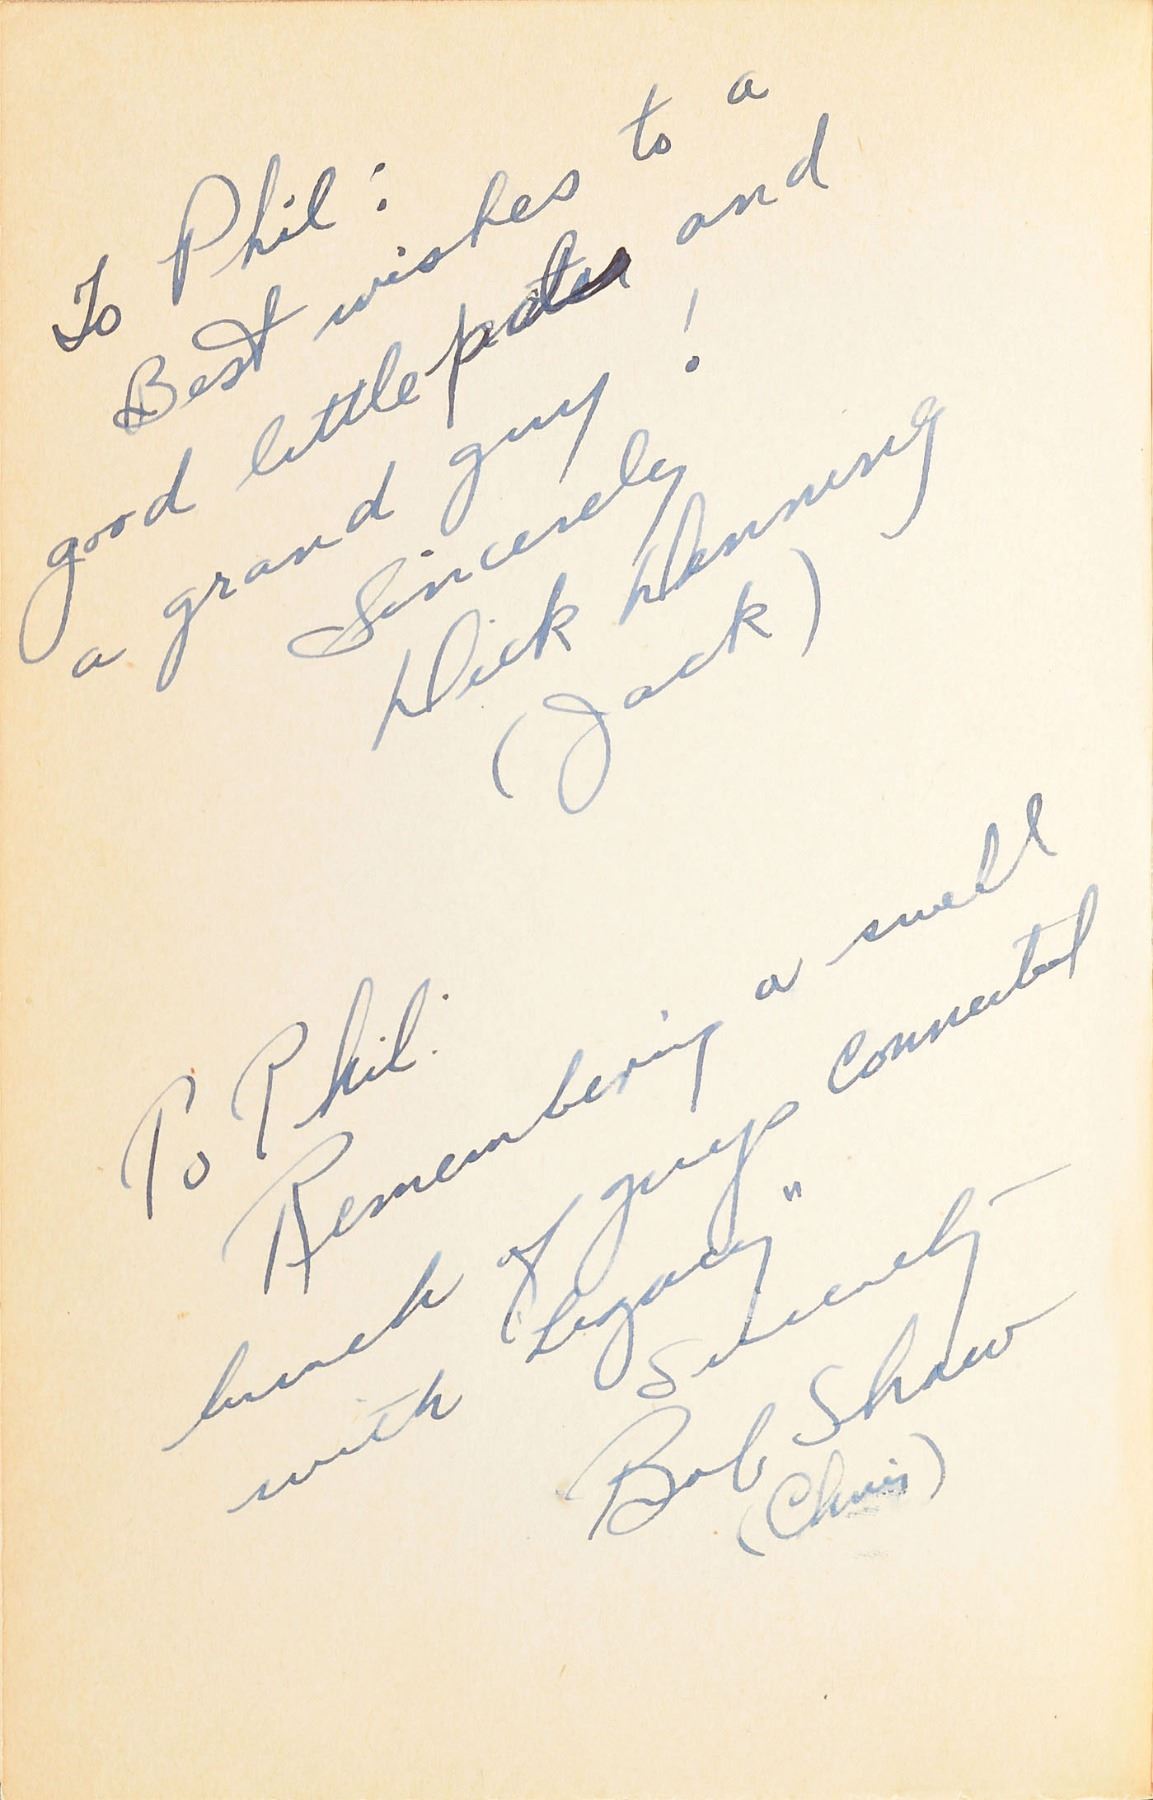 To Phil:
Best wishes to a
good little and
a grand guy!
Sincerely
Dick Denning
(Jack)
To Phil:
Remembering a swell
bunch of guys connected
with "Legacy"
Sincerely
Bob Shaw
(Chris)